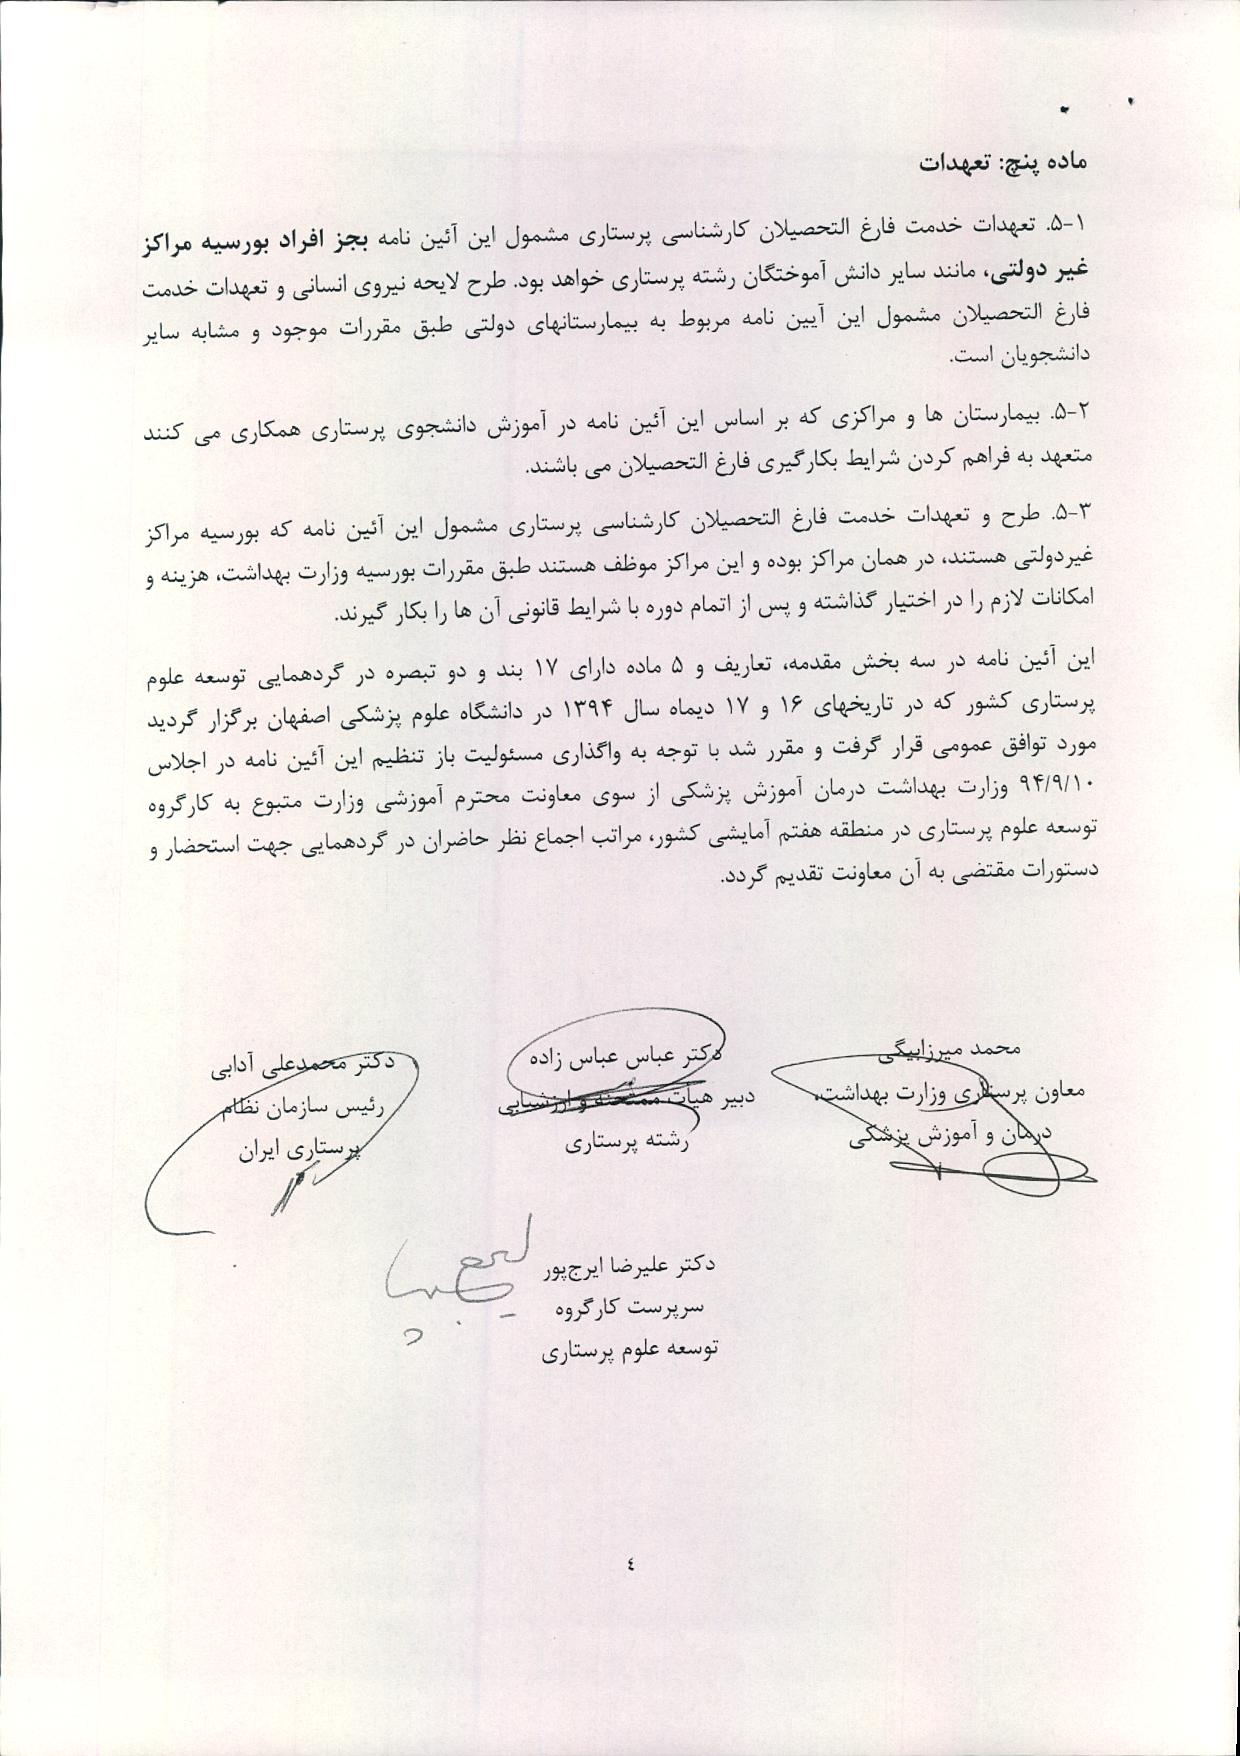 ماده پنچ: تعهدات
۵-۱. تعهدات خدمت فارغ التحصیلان کارشناسی پرستاری مشمول این آئین نامه بجز افراد بورسیه مراکز
غیر دولتی، مانند سایر دانش آموختگان رشته پرستاری خواهد بود. طرح لایحه نیروی انسانی و تعهدات خدمت
فارغ التحصیلان مشمول این آیین نامه مربوط به بیمارستانهای دولتی طبق مقررات موجود و مشابه سایر
دانشجویان است.
۵-۲. بیمارستان ها و مراکزی که بر اساس این آئین نامه در آموزش دانشجوی پرستاری همکاری می کنند
متعهد به فراهم کردن شرایط بکارگیری فارغ التحصیلان می باشند.
۵-۳. طرح و تعهدات خدمت فارغ التحصیلان کارشناسی پرستاری مشمول این آئین نامه که بورسیه مراکز
غیردولتی هستند، در همان مراکز بوده و این مراکز موظف هستند طبق مقررات بورسیه وزارت بهداشت، هزینه و
امکانات لازم را در اختیار گذاشته و پس از اتمام دوره با شرایط قانونی آن ها را بکار گیرند.
این آئین نامه در سه بخش مقدمه، تعاریف و ۵ ماده دارای ۱۷ بند و دو تبصره در گردهمایی توسعه علوم
پرستاری کشور که در تاریخهای ۱۶ و ۱۷ دیماه سال ۱۳۹۴ در دانشگاه علوم پزشکی اصفهان برگزار گردید
مورد توافق عمومی قرار گرفت و مقرر شد با توجه به واگذاری مسئولیت باز تنظیم این آئین نامه در اجلاس
۹۴/۹/۱۰ وزارت بهداشت درمان آموزش پزشکی از سوی معاونت محترم آموزشی وزارت متبوع به کارگروه
توسعه علوم پرستاری در منطقه هفتم آمایشی کشور، مراتب اجماع نظر حاضران در گردهمایی جهت استحضار و
دستورات مقتضی به آن معاونت تقدیم گردد.
محمد میرزابیگی
معاون پرستاری وزارت بهداشت،
درمان و آموزش پزشکی
دکتر عباس عباس زاده
دبیر هیأت ممتحنه و ارزشیابی
رشته پرستاری
دکتر محمدعلی آدابی
رئیس سازمان نظام
پرستاری ایران
دکتر علیرضا ایرج‌پور
سرپرست کارگروه
توسعه علوم پرستاری
٤